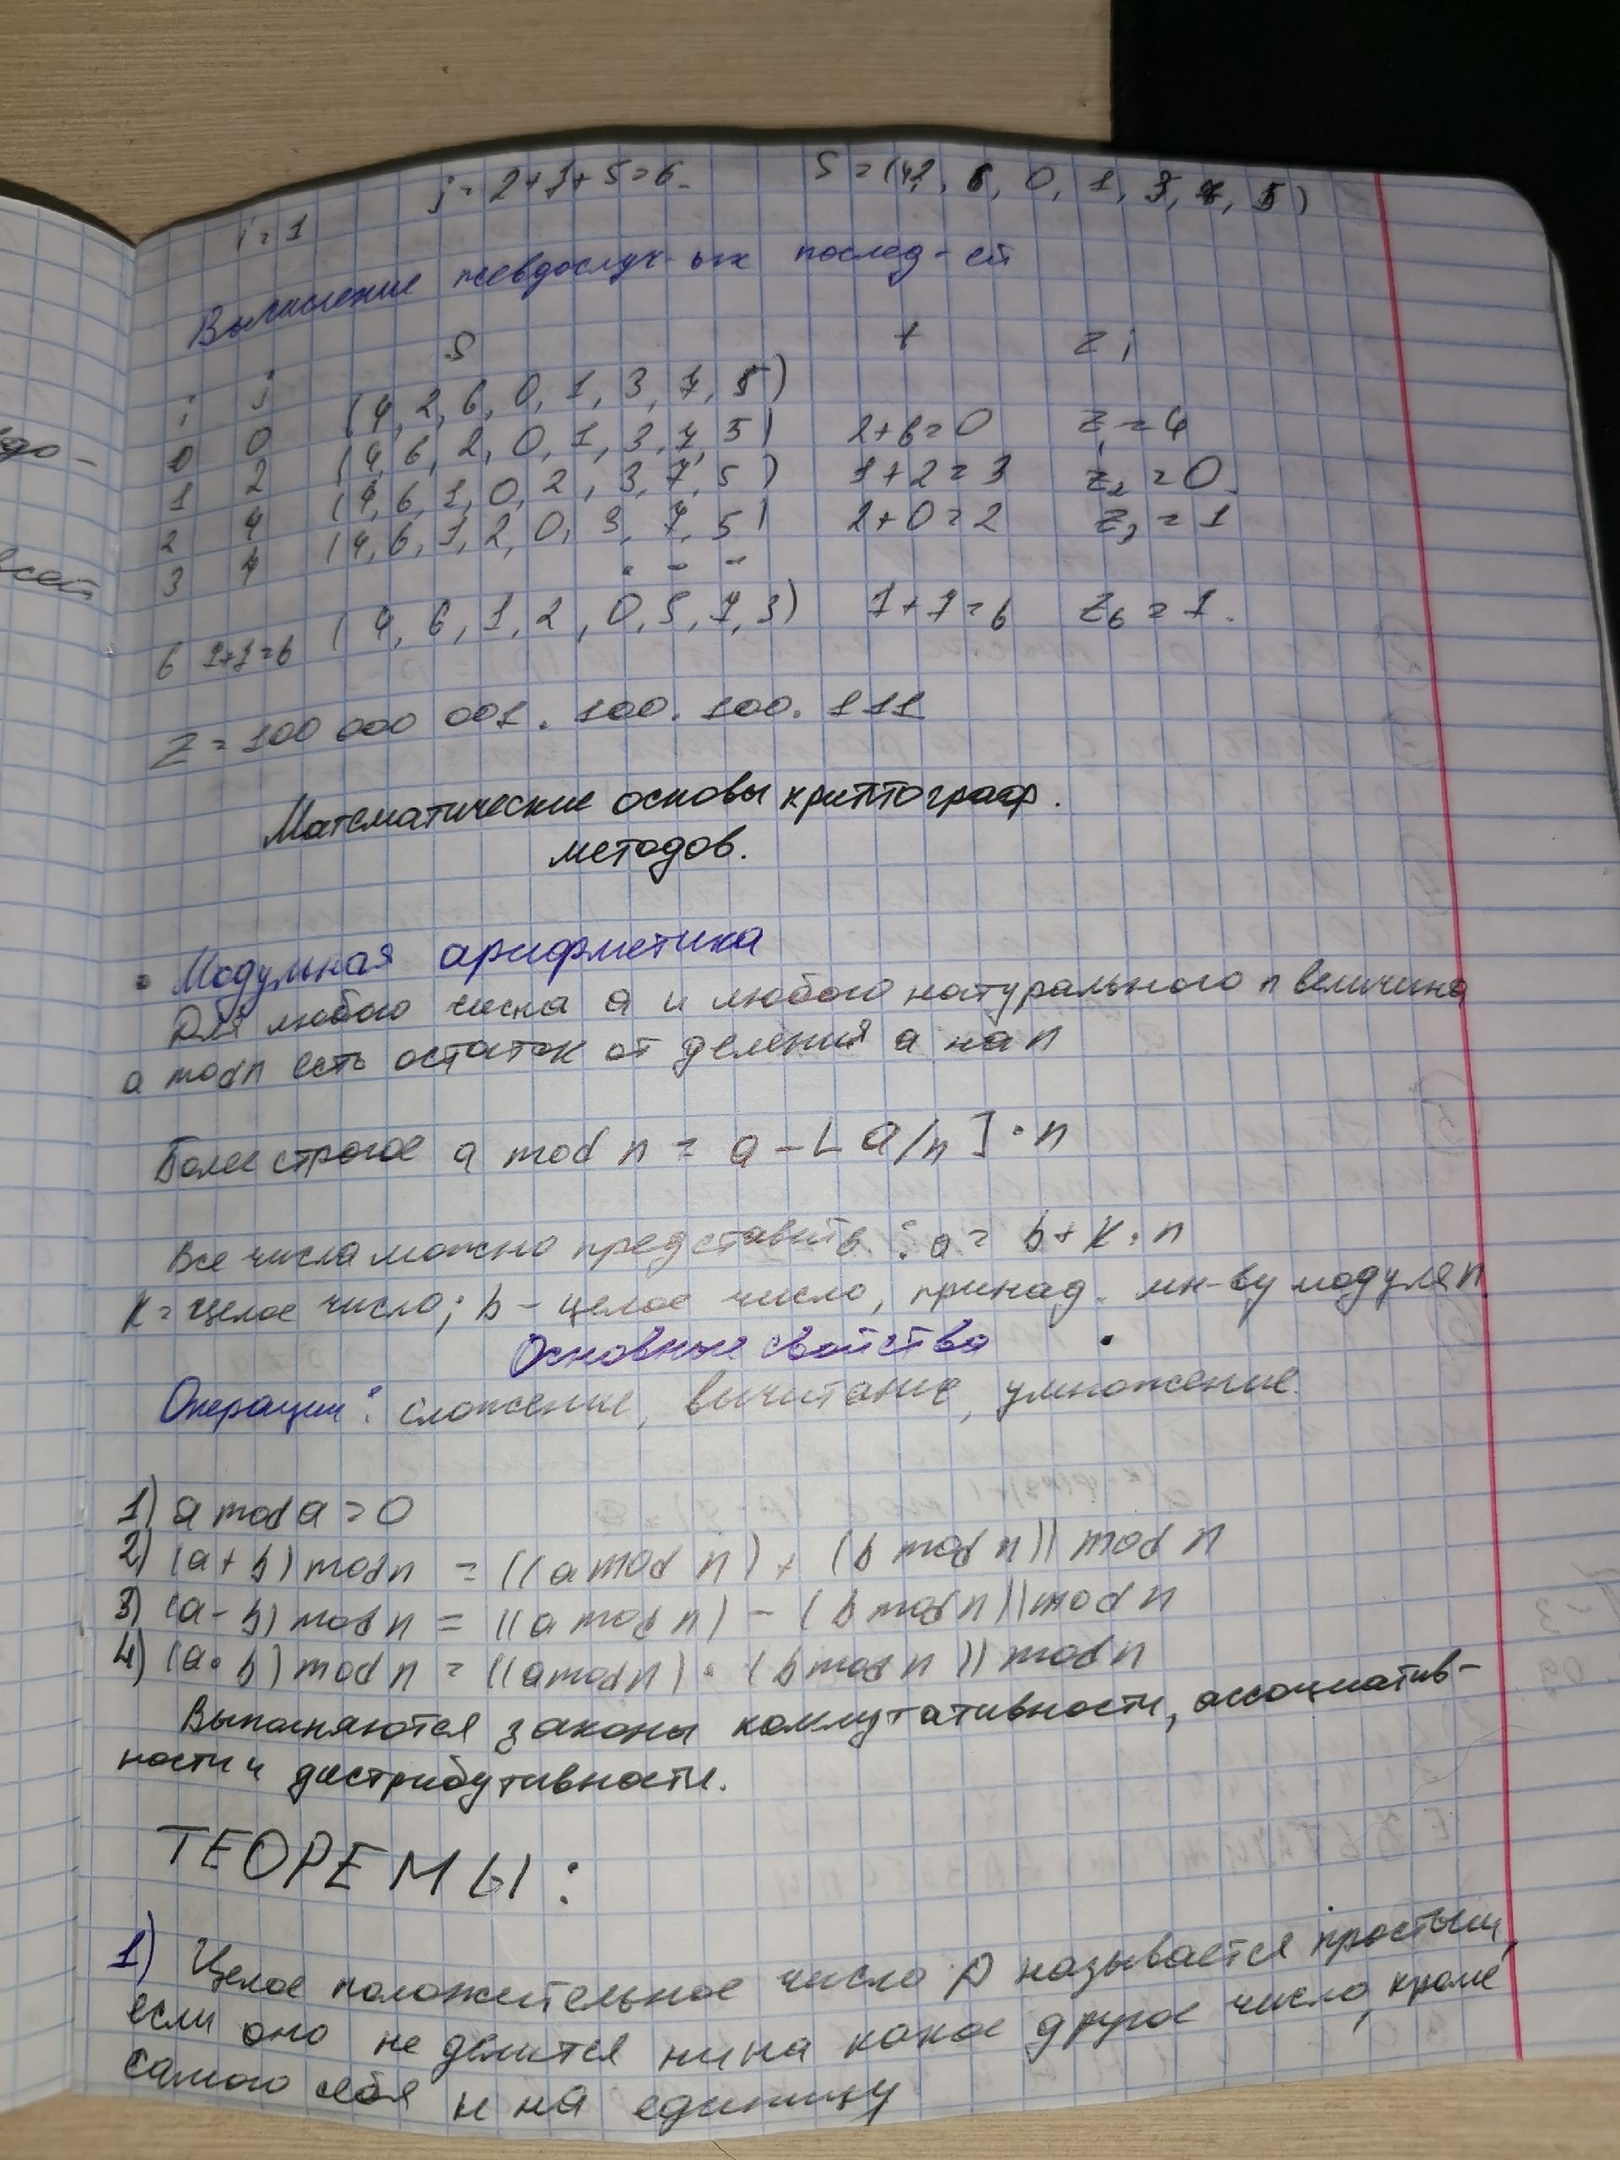 i = 1 j = 2+7+5=6. S = (4, 2, 6, 0, 1, 3, 7, 5)
Вычисление псевдослуч-ых послед-ей
i j S t zi
0 0 (4, 2, 6, 0, 1, 3, 7, 5)
1 2 (4, 6, 2, 0, 1, 3, 7, 5) 2+6=0 z1 = 4
2 4 (4, 6, 1, 0, 2, 3, 7, 5) 1+2=3 z2 = 0
3 4 (4, 6, 1, 2, 0, 3, 7, 5) 2+0=2 z3 = 1
. - -
6 7+7=6 (4, 6, 1, 2, 0, 5, 7, 3) 7+7=6 z6 = 7.
Z = 100 000 001. 100. 100. 111
Математические основы криптограф.
методов.
• Модульная арифметика
Для любого числа а и любого натурального n величина
a mod n есть остаток от деления а на n
Более строгое a mod n = a - ⌊ a/n ⌋ · n
Все числа можно представить : a = b + K · n
K = целое число; b – целое число, принад. мн-ву модуля n
Основные свойства
Операции: сложение, вычитание, умножение.
1) a mod a = 0
2) (a + b) mod n = ((a mod n) + (b mod n)) mod n
3) (a - b) mod n = ((a mod n) - (b mod n)) mod n
4) (a · b) mod n = ((a mod n) · (b mod n)) mod n
Выполняются законы коммутативности, ассоциатив-
ности и дистрибутивности.
ТЕОРЕМЫ:
1) Целое положительное число p называется простым,
если оно не делится ни на какое другое число, кроме
самого себя и на единицу